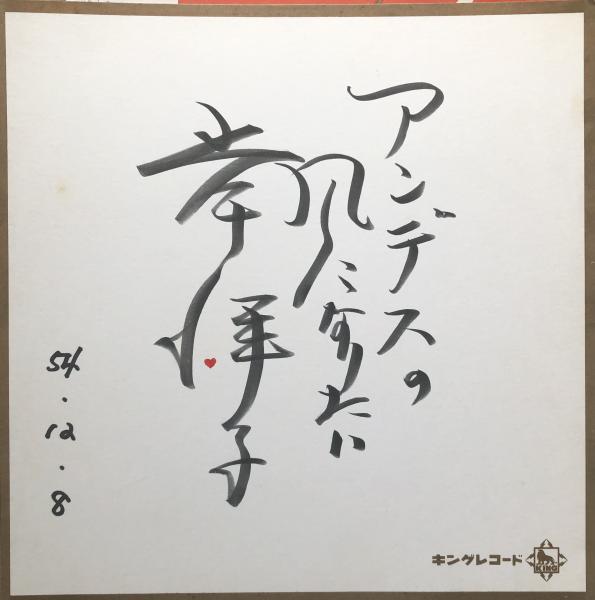 アンデスの
風になりたい
岸洋子
54.12.8
キングレコード
KING